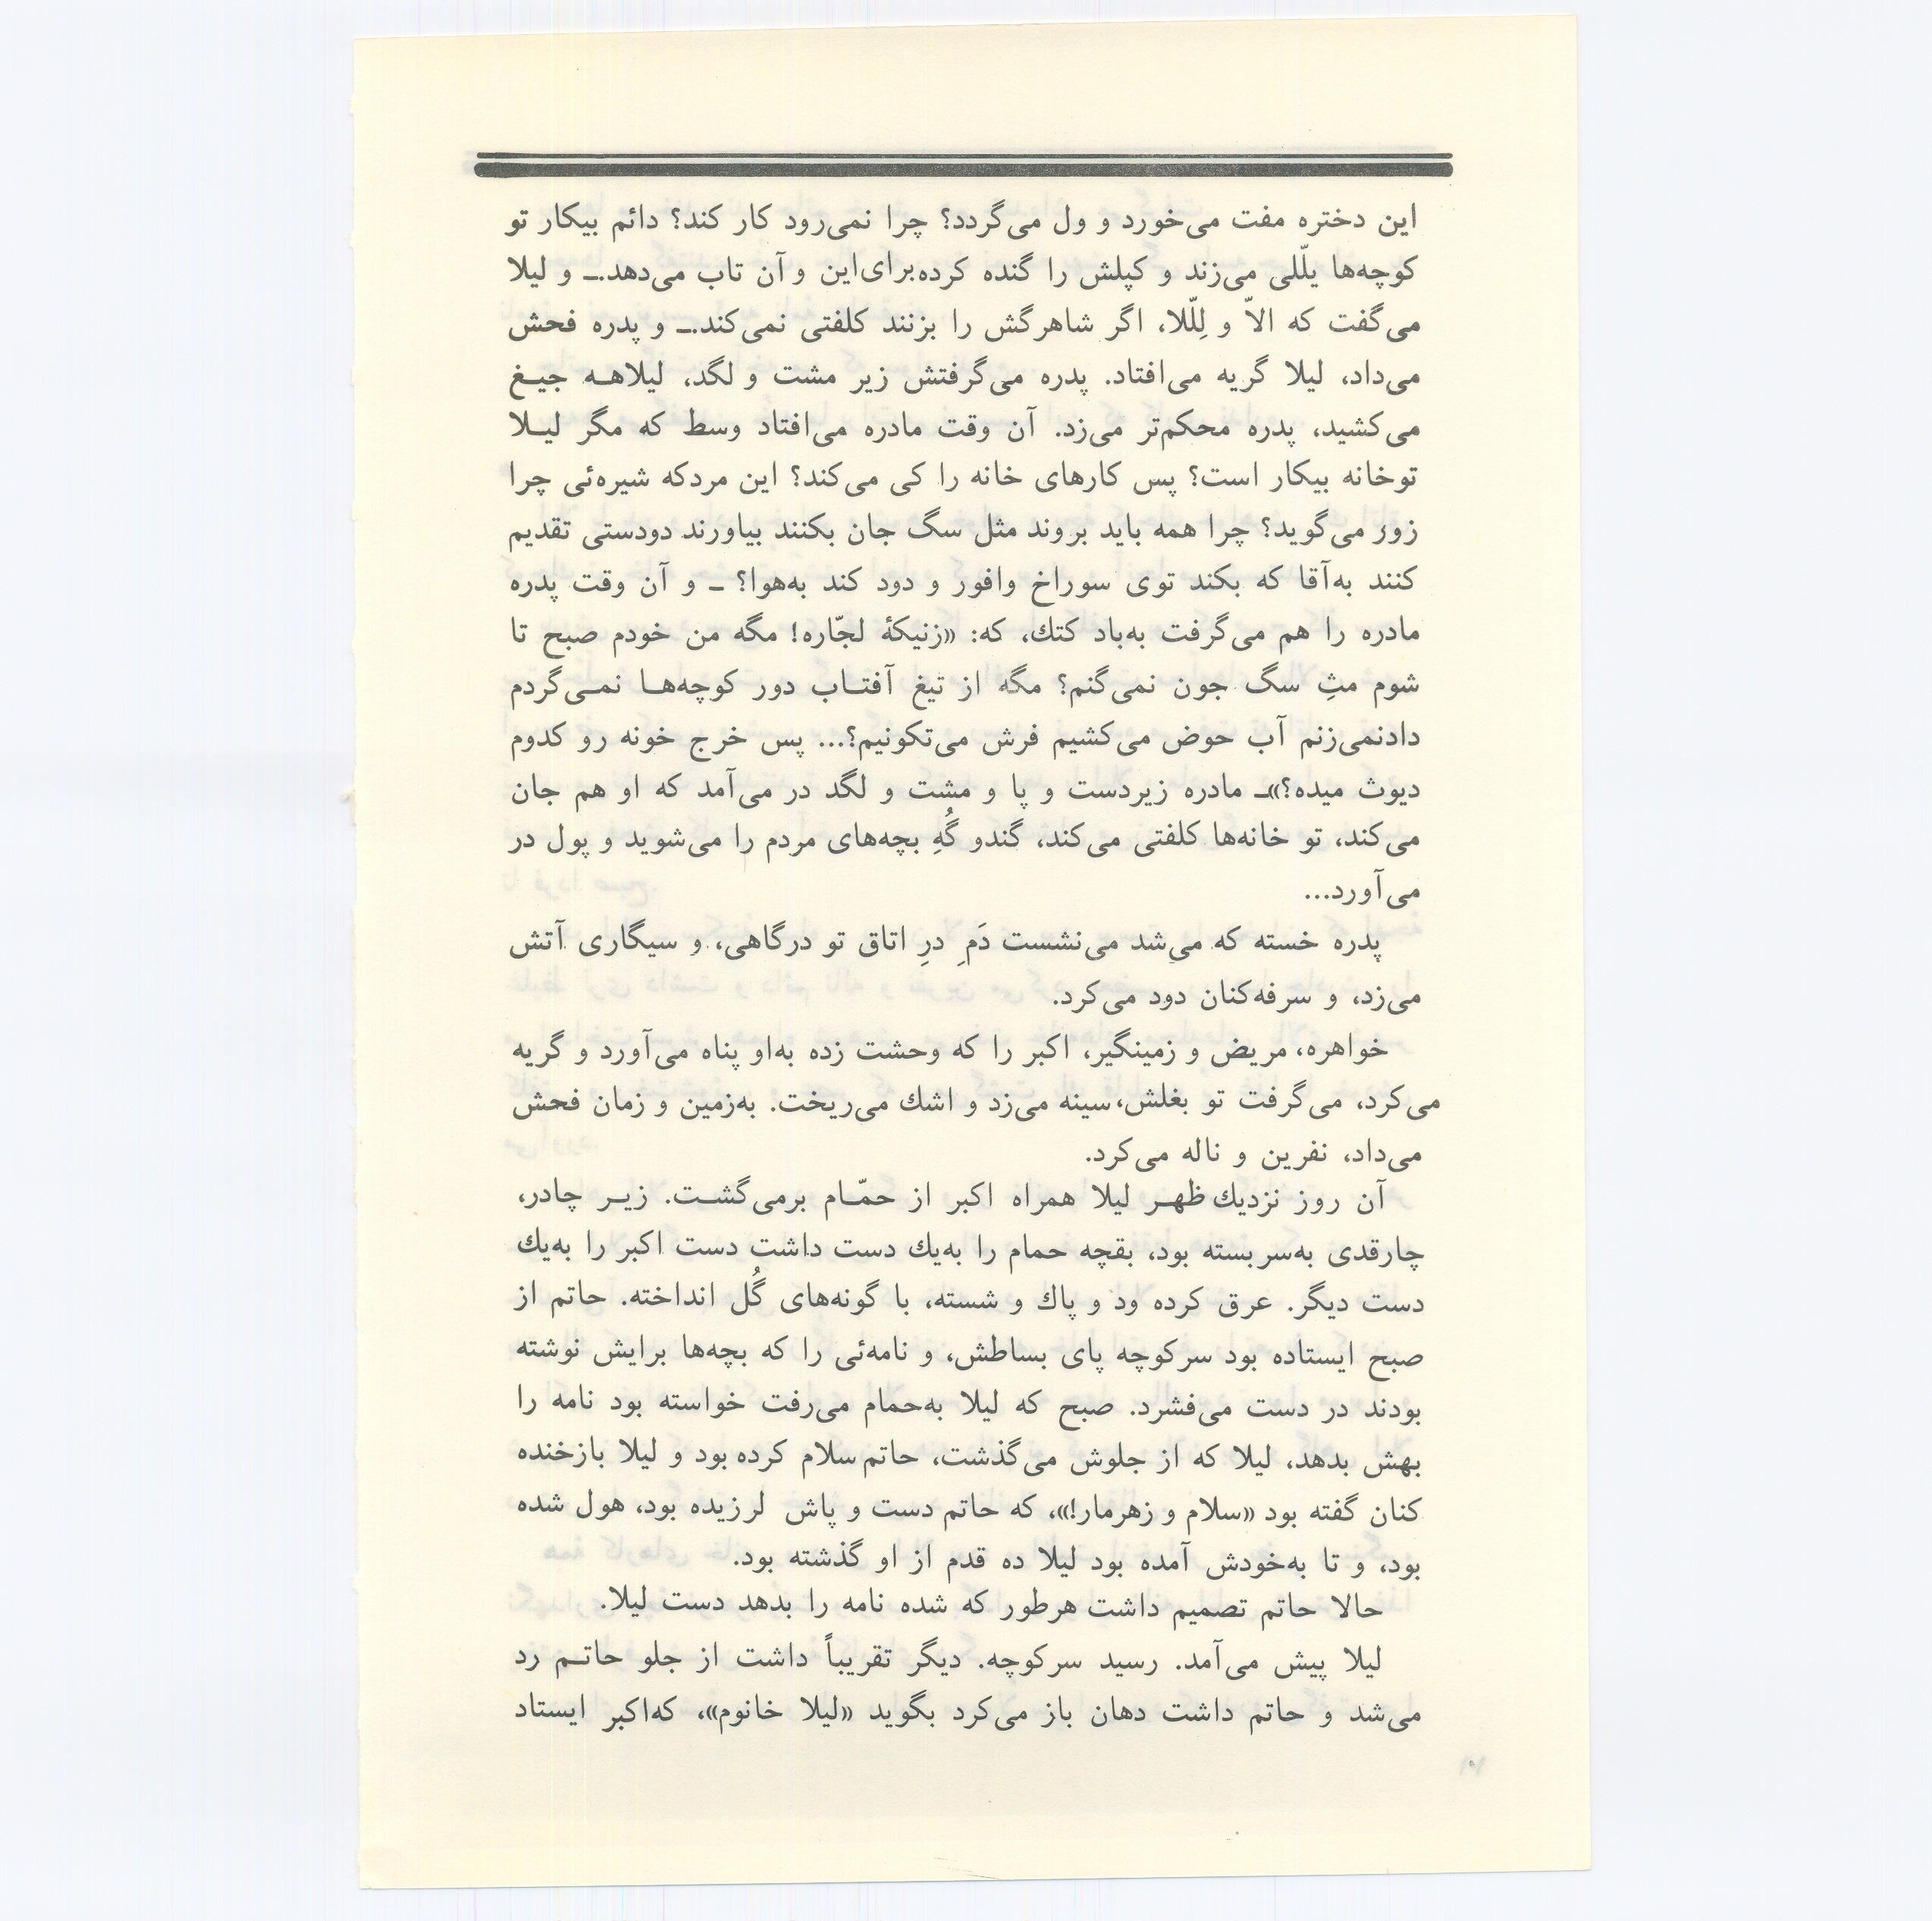 این دختره مفت می‌خورد و ول می‌گردد؟ چرا نمی‌رود کار کند؟ دائم بیکار تو
کوچه‌ها یلّلی می‌زند و کپلش را گنده کرده برای این و آن تاب می‌دهد.ـ و لیلا
می‌گفت که الاّ و لِلّلا، اگر شاهرگش را بزنند کلفتی نمی‌کند.ـ و پدره فحش
می‌داد، لیلا گریه می‌افتاد. پدره می‌گرفتش زیر مشت و لگد، لیلاهـه جیـغ
می‌کشید، پدره محکم‌تر می‌زد. آن وقت مادره می‌افتاد وسط که مگر لیـلا
توخانه بیکار است؟ پس کارهای خانه را کی می‌کند؟ این مردکه شیره‌ئی چرا
زور می‌گوید؟ چرا همه باید بروند مثل سگ جان بکنند بیاورند دودستی تقدیم
کنند به‌آقا که بکند توی سوراخ وافور و دود کند به‌هوا؟ ـ و آن وقت پدره
مادره را هم می‌گرفت به‌باد کتك، که: «زنیکهٔ لجّاره! مگه من خودم صبح تا
شوم مثِ سگ جون نمی‌گنم؟ مگه از تیغ آفتـاب دور کوچه‌هـا نمـی‌گردم
دادنمی‌زنم آب حوض می‌کشیم فرش می‌تکونیم؟... پس خرج خونه رو کدوم
دیوث میده؟»ـ مادره زیردست و پا و مشت و لگد در می‌آمد که او هم جان
می‌کند، تو خانه‌ها کلفتی می‌کند، گندو گُهِ بچه‌های مردم را می‌شوید و پول در
می‌آورد...
پدره خسته که می‌شد می‌نشست دَمِ درِ اتاق تو درگاهی، و سیگاری آتش
می‌زد، و سرفه‌کنان دود می‌کرد.
خواهره، مریض و زمینگیر، اکبر را که وحشت زده به‌او پناه می‌آورد و گریه
می‌کرد، می‌گرفت تو بغلش، سینه می‌زد و اشك می‌ریخت. به‌زمین و زمان فحش
می‌داد، نفرین و ناله می‌کرد.
آن روز نزدیك ظهـر لیلا همراه اکبر از حمّـام برمی‌گشـت. زیـر چادر،
چارقدی به‌سر بسته بود، بقچه حمام را به‌یك دست داشت دست اکبر را به‌یك
دست دیگر. عرق کرده ود و پاك و شسته، با گونه‌های گُل انداخته. حاتم از
صبح ایستاده بود سرکوچه پای بساطش، و نامه‌ئی را که بچه‌ها برایش نوشته
بودند در دست می‌فشرد. صبح که لیلا به‌حمام می‌رفت خواسته بود نامه را
بهش بدهد، لیلا که از جلوش می‌گذشت، حاتم سلام کرده بود و لیلا بازخنده
کنان گفته بود «سلام و زهرمار!»، که حاتم دست و پاش لرزیده بود، هول شده
بود، و تا به‌خودش آمده بود لیلا ده قدم از او گذشته بود.
حالا حاتم تصمیم داشت هرطور که شده نامه را بدهد دست لیلا.
لیلا پیش می‌آمد. رسید سرکوچه. دیگر تقریباً داشت از جلو حاتـم رد
می‌شد و حاتم داشت دهان باز می‌کرد بگوید «لیلا خانوم»، که‌اکبر ایستاد